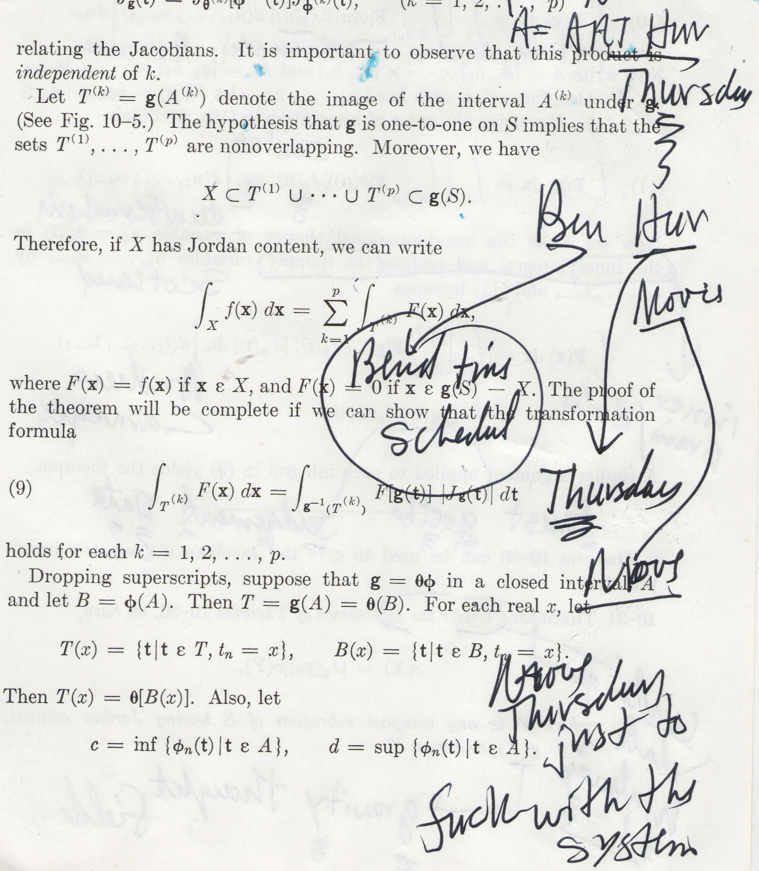 relating the Jacobians. It is important to observe that this product is
independent of k.
Let T⁽ᵏ⁾ = g(A⁽ᵏ⁾) denote the image of the interval A⁽ᵏ⁾ under g.
(See Fig. 10–5.) The hypothesis that g is one-to-one on S implies that the
sets T⁽¹⁾, . . . , T⁽ᵖ⁾ are nonoverlapping. Moreover, we have
X ⊂ T⁽¹⁾ ∪ · · · ∪ T⁽ᵖ⁾ ⊂ g(S).
Therefore, if X has Jordan content, we can write
∫_X f(x) dx = ∑_{k=1}^{p} ∫_{T⁽ᵏ⁾} F(x) dx,
where F(x) = f(x) if x ε X, and F(x) = 0 if x ε g(S) − X. The proof of
the theorem will be complete if we can show that the transformation
formula
(9) ∫_{T⁽ᵏ⁾} F(x) dx = ∫_{g⁻¹(T⁽ᵏ⁾)} F[g(t)] |J_g(t)| dt
holds for each k = 1, 2, . . . , p.
Dropping superscripts, suppose that g = θϕ in a closed interval A
and let B = ϕ(A). Then T = g(A) = θ(B). For each real x, let
T(x) = {t|t ε T, tₙ = x}, B(x) = {t|t ε B, tₙ = x}.
Then T(x) = θ[B(x)]. Also, let
c = inf {ϕₙ(t)|t ε A}, d = sup {ϕₙ(t)|t ε A}.
A = ART Hur
Thursday
Ben Hur
Movis
Bend tins
Schedul
Thursday
Movs
Move
Thursday
just to
fuck with ths
system